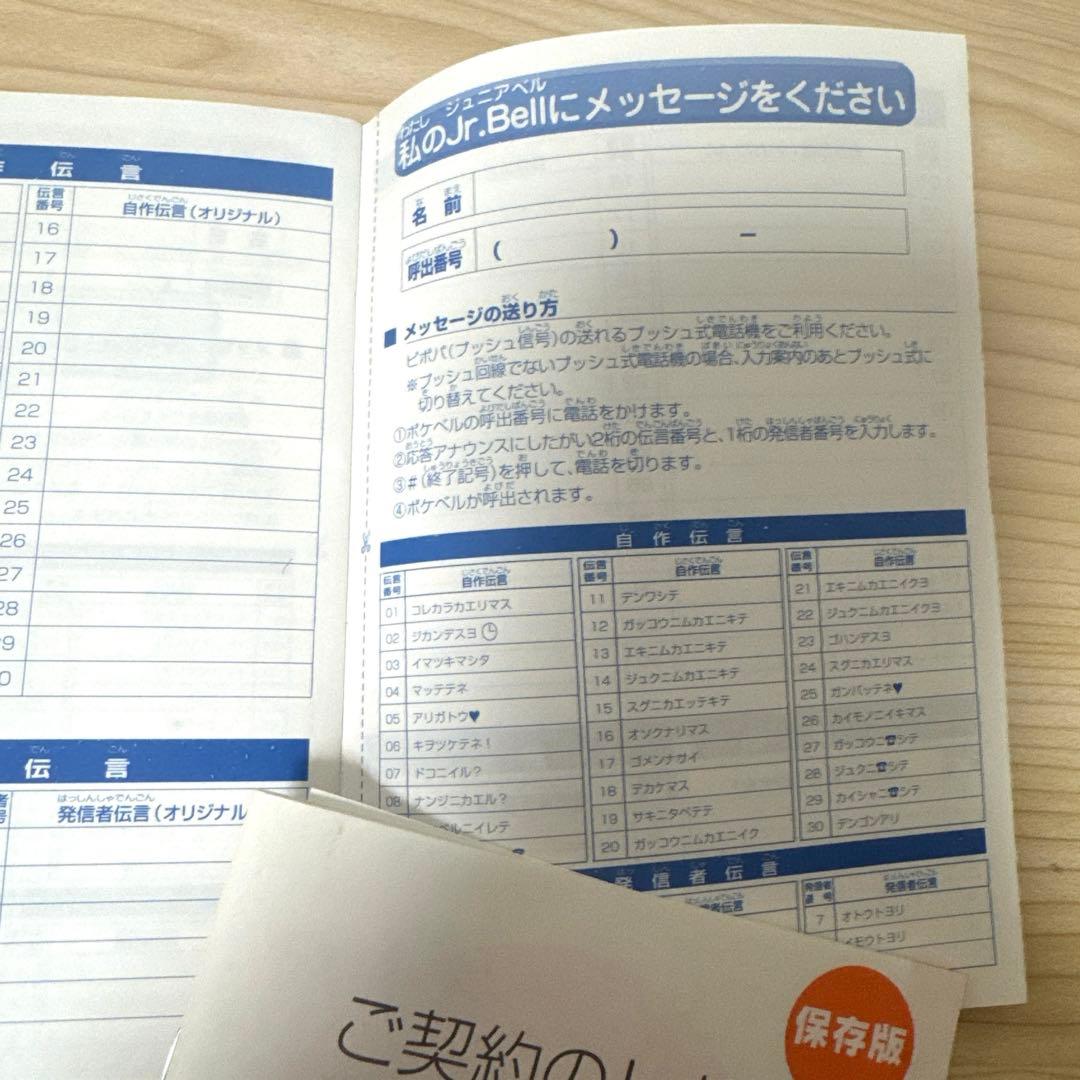 作 伝 言
でん ごん
伝言番号
じさくでんごん
自作伝言(オリジナル)
16
17
18
19
20
21
22
23
24
25
26
27
28
29
0
でん ごん
伝 言
号
はっしんしゃでんごん
発信者伝言(オリジナル
わたし ジュニアベル
私のJr.Bellにメッセージをください
な まえ
名 前
よびだしばんごう
呼出番号
( ) −
■ メッセージの送り方
ピポパ(プッシュ信号)の送れるプッシュ式電話機をご利用ください。
※プッシュ回線でないプッシュ式電話機の場合、入力案内のあとプッシュ式に
切り替えてください。
①ポケベルの呼出番号に電話をかけます。
②応答アナウンスにしたがい2桁の伝言番号と、1桁の発信者番号を入力します。
③#(終了記号)を押して、電話を切ります。
④ポケベルが呼出されます。
自 作 伝 言
伝言番号 自作伝言
01 コレカラカエリマス
02 ジカンデスヨ🕒
03 イマツキマシタ
04 マッテテネ
05 アリガトウ♥
06 キヲツケテネ!
07 ドコニイル?
08 ナンジニカエル?
ベルニイレテ
伝言番号 自作伝言
11 デンワシテ
12 ガッコウニムカエニキテ
13 エキニムカエニキテ
14 ジュクニムカエニキテ
15 スグニカエッテキテ
16 オソクナリマス
17 ゴメンナサイ
18 デカケマス
19 サキニタベテテ
20 ガッコウニムカエニイク
伝言番号 自作伝言
21 エキニムカエニイクヨ
22 ジュクニムカエニイクヨ
23 ゴハンデスヨ
24 スグニカエリマス
25 ガンバッテネ♥
26 カイモノニイキマス
27 ガッコウニ☎シテ
28 ジュクニ☎シテ
29 カイシャニ☎シテ
30 デンゴンアリ
発 信 者 伝 言
者伝言
発信者番号 発信者伝言
7 オトウトヨリ
イモウトヨリ
ご契約の
保存版